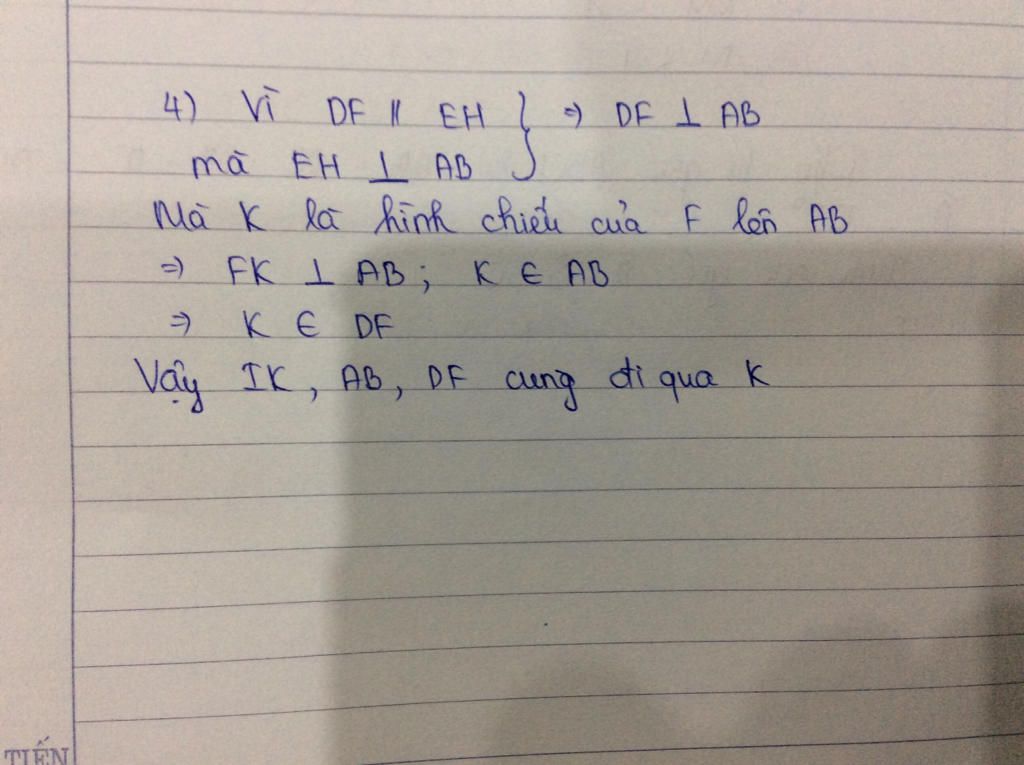 4) Vì DF // EH } => DF ⊥ AB
mà EH ⊥ AB
Mà K là hình chiếu của F lên AB
=> FK ⊥ AB; K ∈ AB
=> K ∈ DF
Vậy IK, AB, DF cung đi qua K
TIẾN